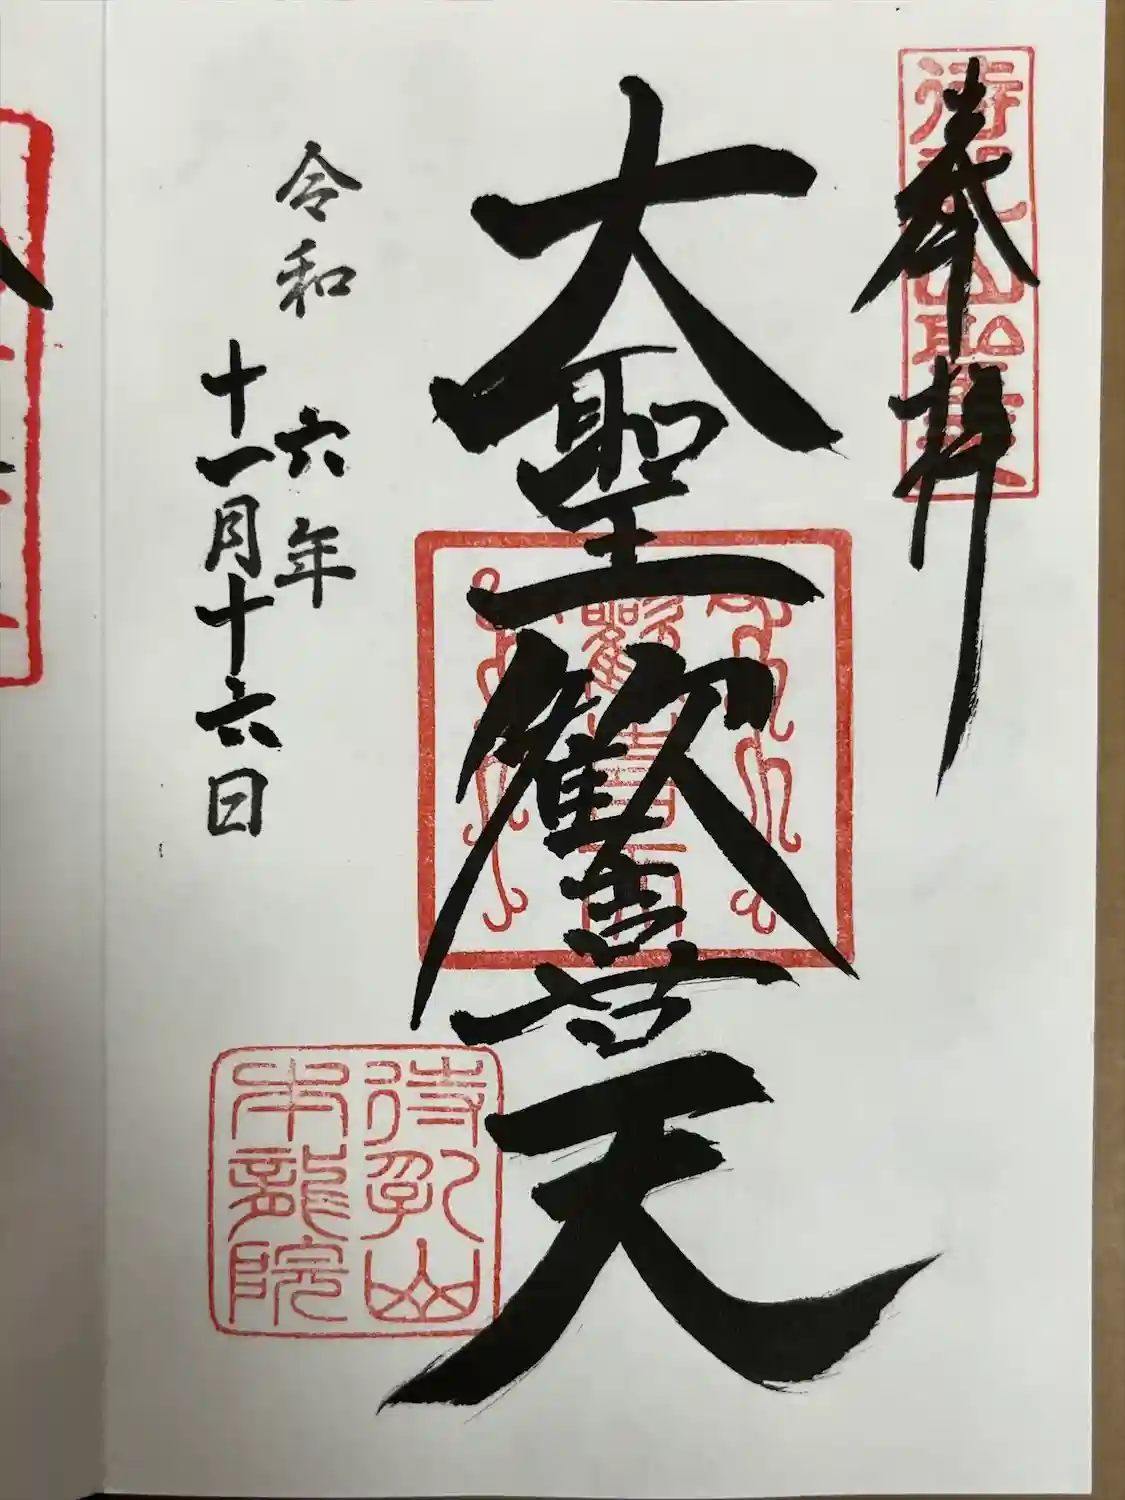 奉拝
待乳山聖天
大聖歓喜天
歓喜天
令和六年
十一月十六日
待乳山
本龍院